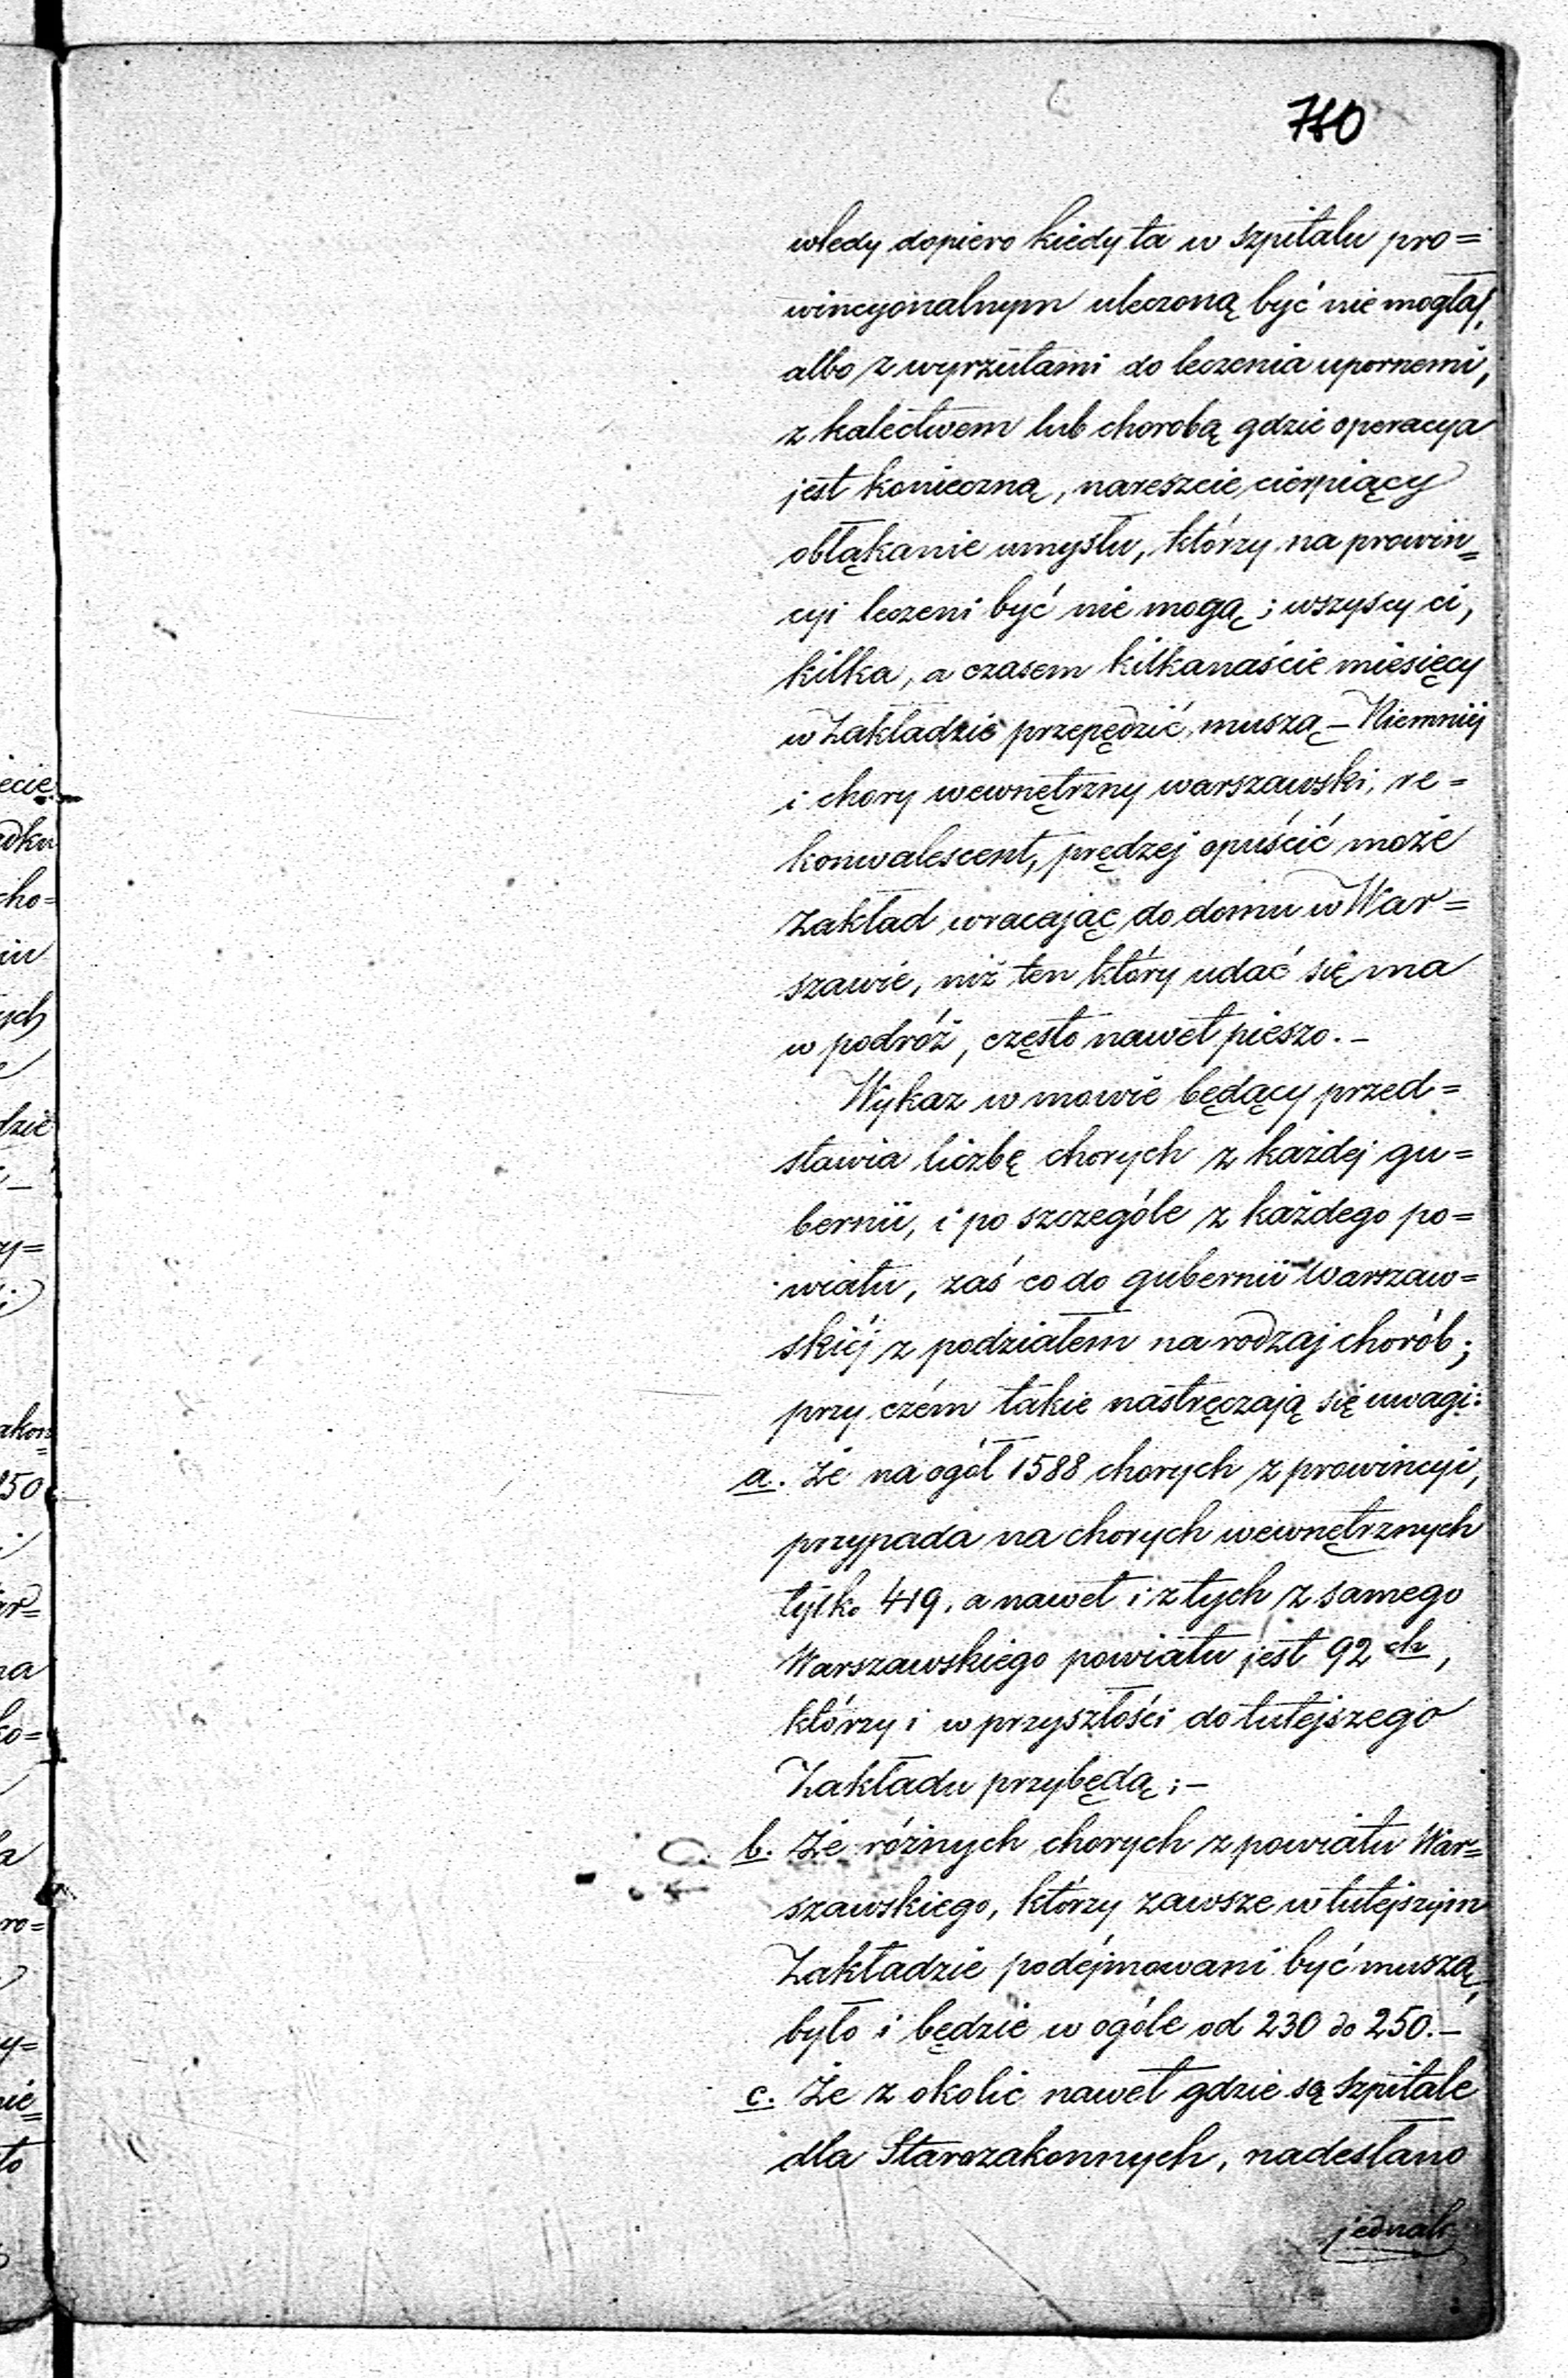 710
wtedy dopiero kiedy ta w szpitalu pro=
wincyonalnym uleczoną być nie mogła,
albo z wyrzutami do leczenia upornemi,
z kalectwem lub chorobą gdzie operacya
jest konieczną, nareszcie cierpiący
obłąkanie umysłu, którzy na prowin=
cyi leczeni być nie mogą; wszyscy ci,
kilka, a czasem kilkanaście miesięcy
w Zakładzie przepędzić muszą – Niemniéj
i chory wewnętrzny warszawski, re=
konwalescent, prędzej opuścić może
Zakład wracając do domu w War=
szawie, niż ten który udać się ma
w podróż, często nawet pieszo. –
Wykaz w mowie będący przed=
stawia liczbę chorych z każdej gu=
bernii, i po szczególe z każdego po=
wiatu, zaś co do gubernii Warszaw=
skiéj z podziałem na rodzaj chorób;
przy czém takie nastręczają się uwagi:
a. Że na ogół 1588 chorych z prowincyi,
przypada na chorych wewnętrznych
tylko 419, a nawet i z tych z samego
Warszawskiego powiatu jest 92 ch,
którzy i w przyszłości do tutejszego
Zakładu przybędą; –
b. Że różnych chorych z powiatu War=
szawskiego, którzy zawsze w tutejszym
Zakładzie podéjmowani być muszą,
było i będzie w ogóle od 230 do 250. –
c. Że z okolic nawet gdzie są Szpitale
dla Starozakonnych, nadesłano
jednak